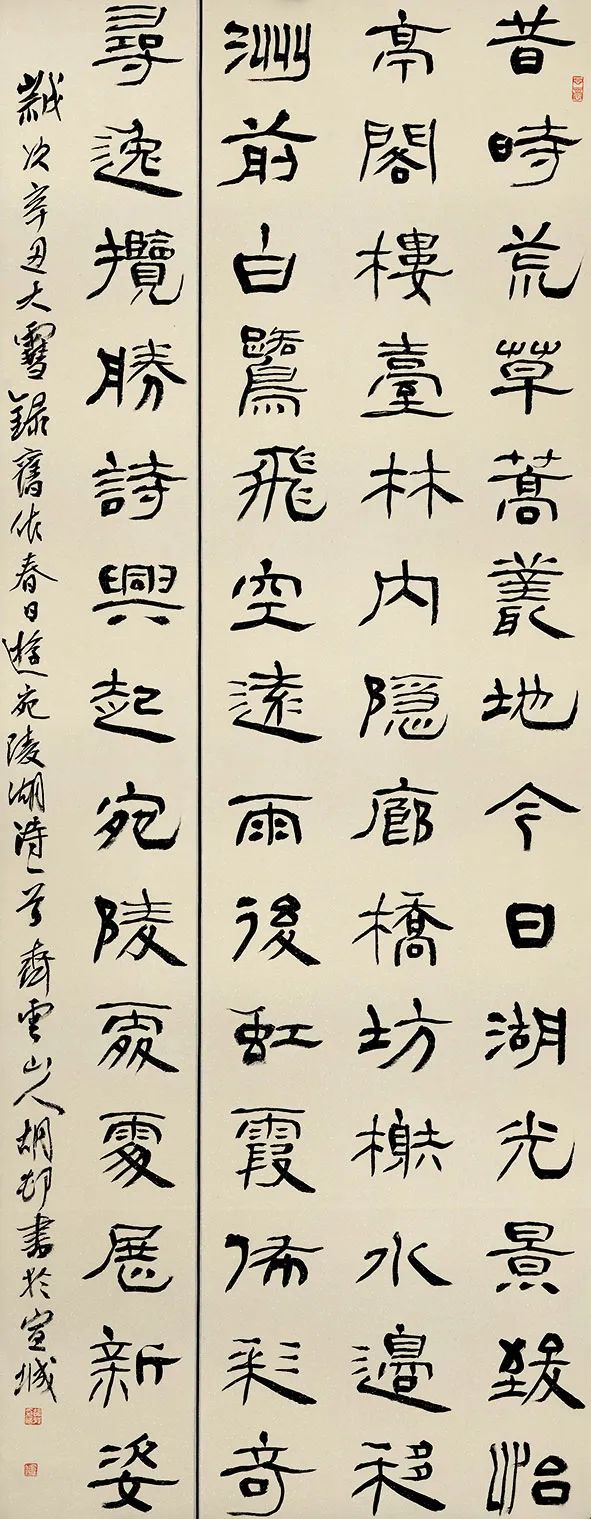 昔時荒草蒿叢地今日湖光景致怡
亭閣樓臺林內隐廊橋坊榭水邊移
洲前白鷺飛空遠雨後虹霞佈彩奇
尋逸攬勝詩興起宛陵處處展新姿
歲次辛丑大雪錄舊作春日遊宛陵湖詩一首齊雲山人胡邨書於宣城